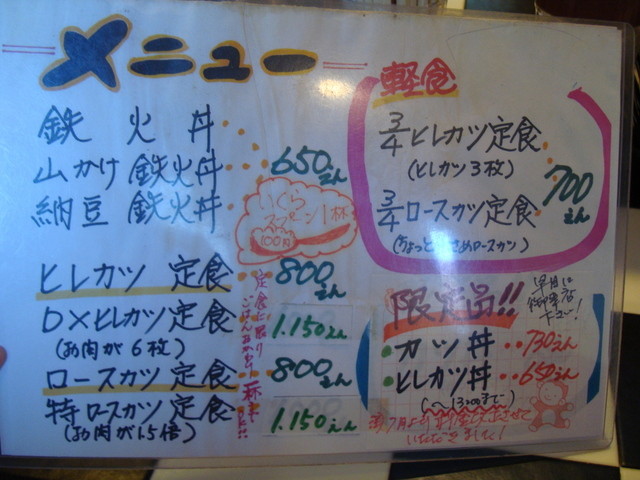 メニュー
鉄火丼
山かけ 鉄火丼
納豆 鉄火丼
650えん
いくら
スプーン1杯
100円
ヒレカツ 定食 800えん
DXヒレカツ定食 1.150えん
(お肉が6枚)
ロースカツ 定食 800えん
特ロースカツ定食 1.150えん
(お肉が1.5倍)
定食に限り
軽食
3/4ヒレカツ定食
(ヒレカツ3枚)
700えん
3/4ロースカツ定食
(ちょっと小さめロースカツ)
限定品!!
早目に
御来店
下さい!
カツ丼 ・・730えん
ヒレカツ丼 ・・650えん
(〜13:00まで)
いただきました!